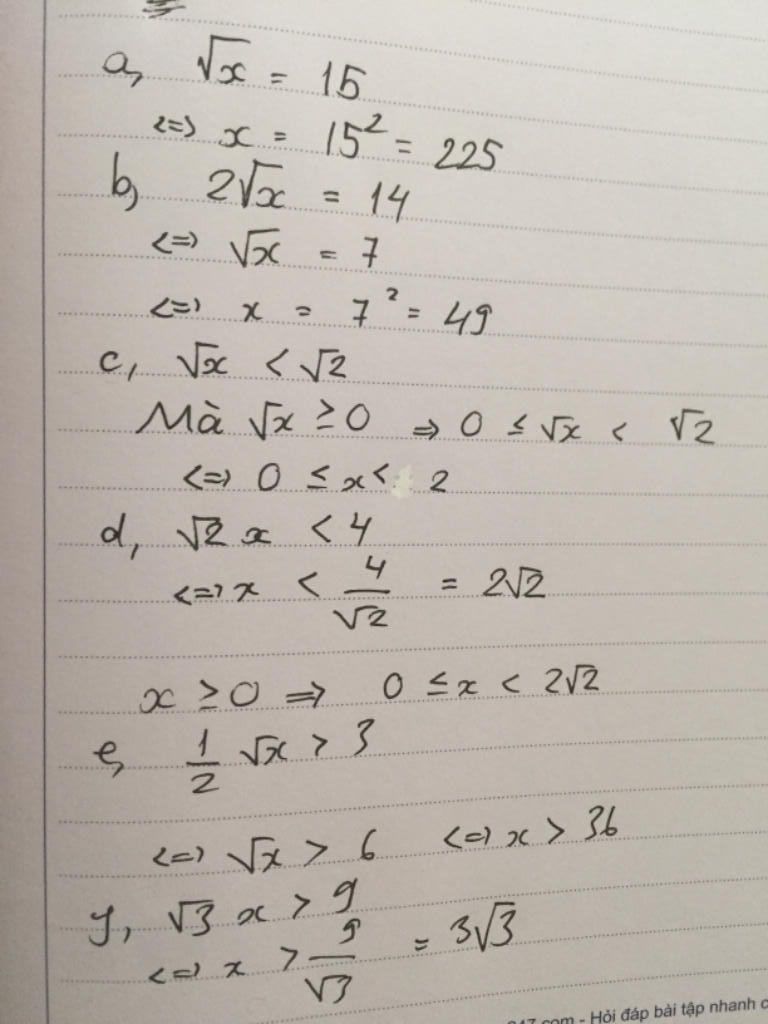 a, √x = 15
<=> x = 15² = 225
b, 2√x = 14
<=> √x = 7
<=> x = 7² = 49
c, √x < √2
Mà √x ≥ 0 => 0 ≤ √x < √2
<=> 0 ≤ x < 2
d, √2 x < 4
<=> x < 4/√2 = 2√2
x ≥ 0 => 0 ≤ x < 2√2
e, 1/2 √x > 3
<=> √x > 6 <=> x > 36
y, √3 x > 9
<=> x > 9/√3 = 3√3
247.com - Hỏi đáp bài tập nhanh